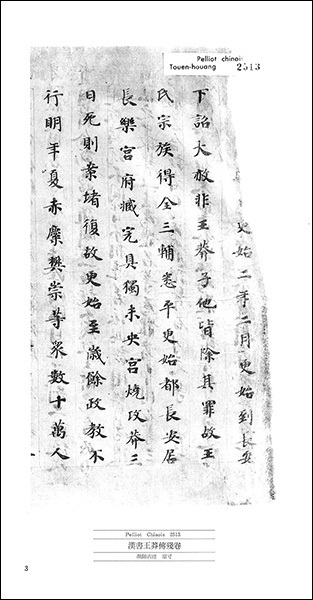 Pelliot chinois
Touen-houang 2513
更始二年二月更始到長安
下詔大赦非王莽子他皆除其罪故王
氏宗族得全三輔悉平更始都長安居
長樂宮府臧完具獨未央宮燒攻莽三
日死則案堵復故更始至歲餘政教不
行明年夏赤麋樊崇等眾數十萬人
Pelliot Chinois 2513
漢書王莽傳殘卷
顏師古注 原寸
3